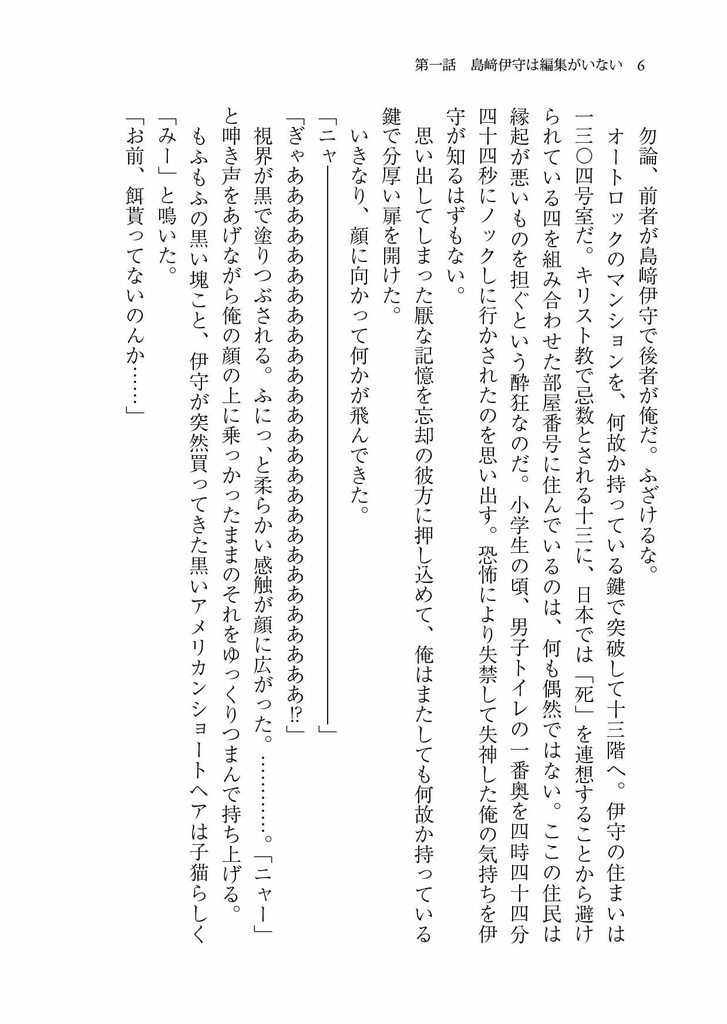 第一話　島﨑伊守は編集がいない　6
勿論、前者が島﨑伊守で後者が俺だ。ふざけるな。
オートロックのマンションを、何故か持っている鍵で突破して十三階へ。伊守の住まいは
一三〇四号室だ。キリスト教で忌数とされる十三に、日本では「死」を連想することから避け
られている四を組み合わせた部屋番号に住んでいるのは、何も偶然ではない。ここの住民は
縁起が悪いものを担ぐという酔狂なのだ。小学生の頃、男子トイレの一番奥を四時四十四分
四十四秒にノックしに行かされたのを思い出す。恐怖により失禁して失神した俺の気持ちを伊
守が知るはずもない。
思い出してしまった厭な記憶を忘却の彼方に押し込めて、俺はまたしても何故か持っている
鍵で分厚い扉を開けた。
いきなり、顔に向かって何かが飛んできた。
「ニャ――――――――――――――――――」
「ぎゃあああああああああああああああああああああああああああああ!?」
視界が黒で塗りつぶされる。ふにっ、と柔らかい感触が顔に広がった。…………。「ニャー」
と呻き声をあげながら俺の顔の上に乗っかったままのそれをゆっくりつまんで持ち上げる。
もふもふの黒い塊こと、伊守が突然買ってきた黒いアメリカンショートヘアは子猫らしく
「みー」と鳴いた。
「お前、餌貰ってないのんか……」